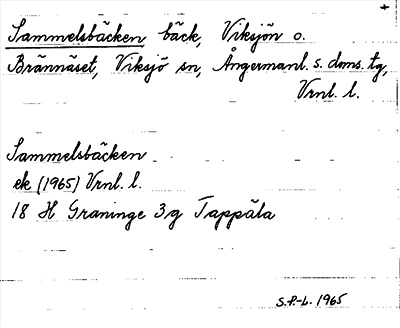 Sammelsbäcken bäck, Viksjön o.
Brännäset, Viksjö sn, Ångermanl. s. doms. tg,
Vrnl. l.
Sammelsbäcken
ek (1965) Vrnl. l.
18 H Graninge 3g Tappäla
S.F-L. 1965